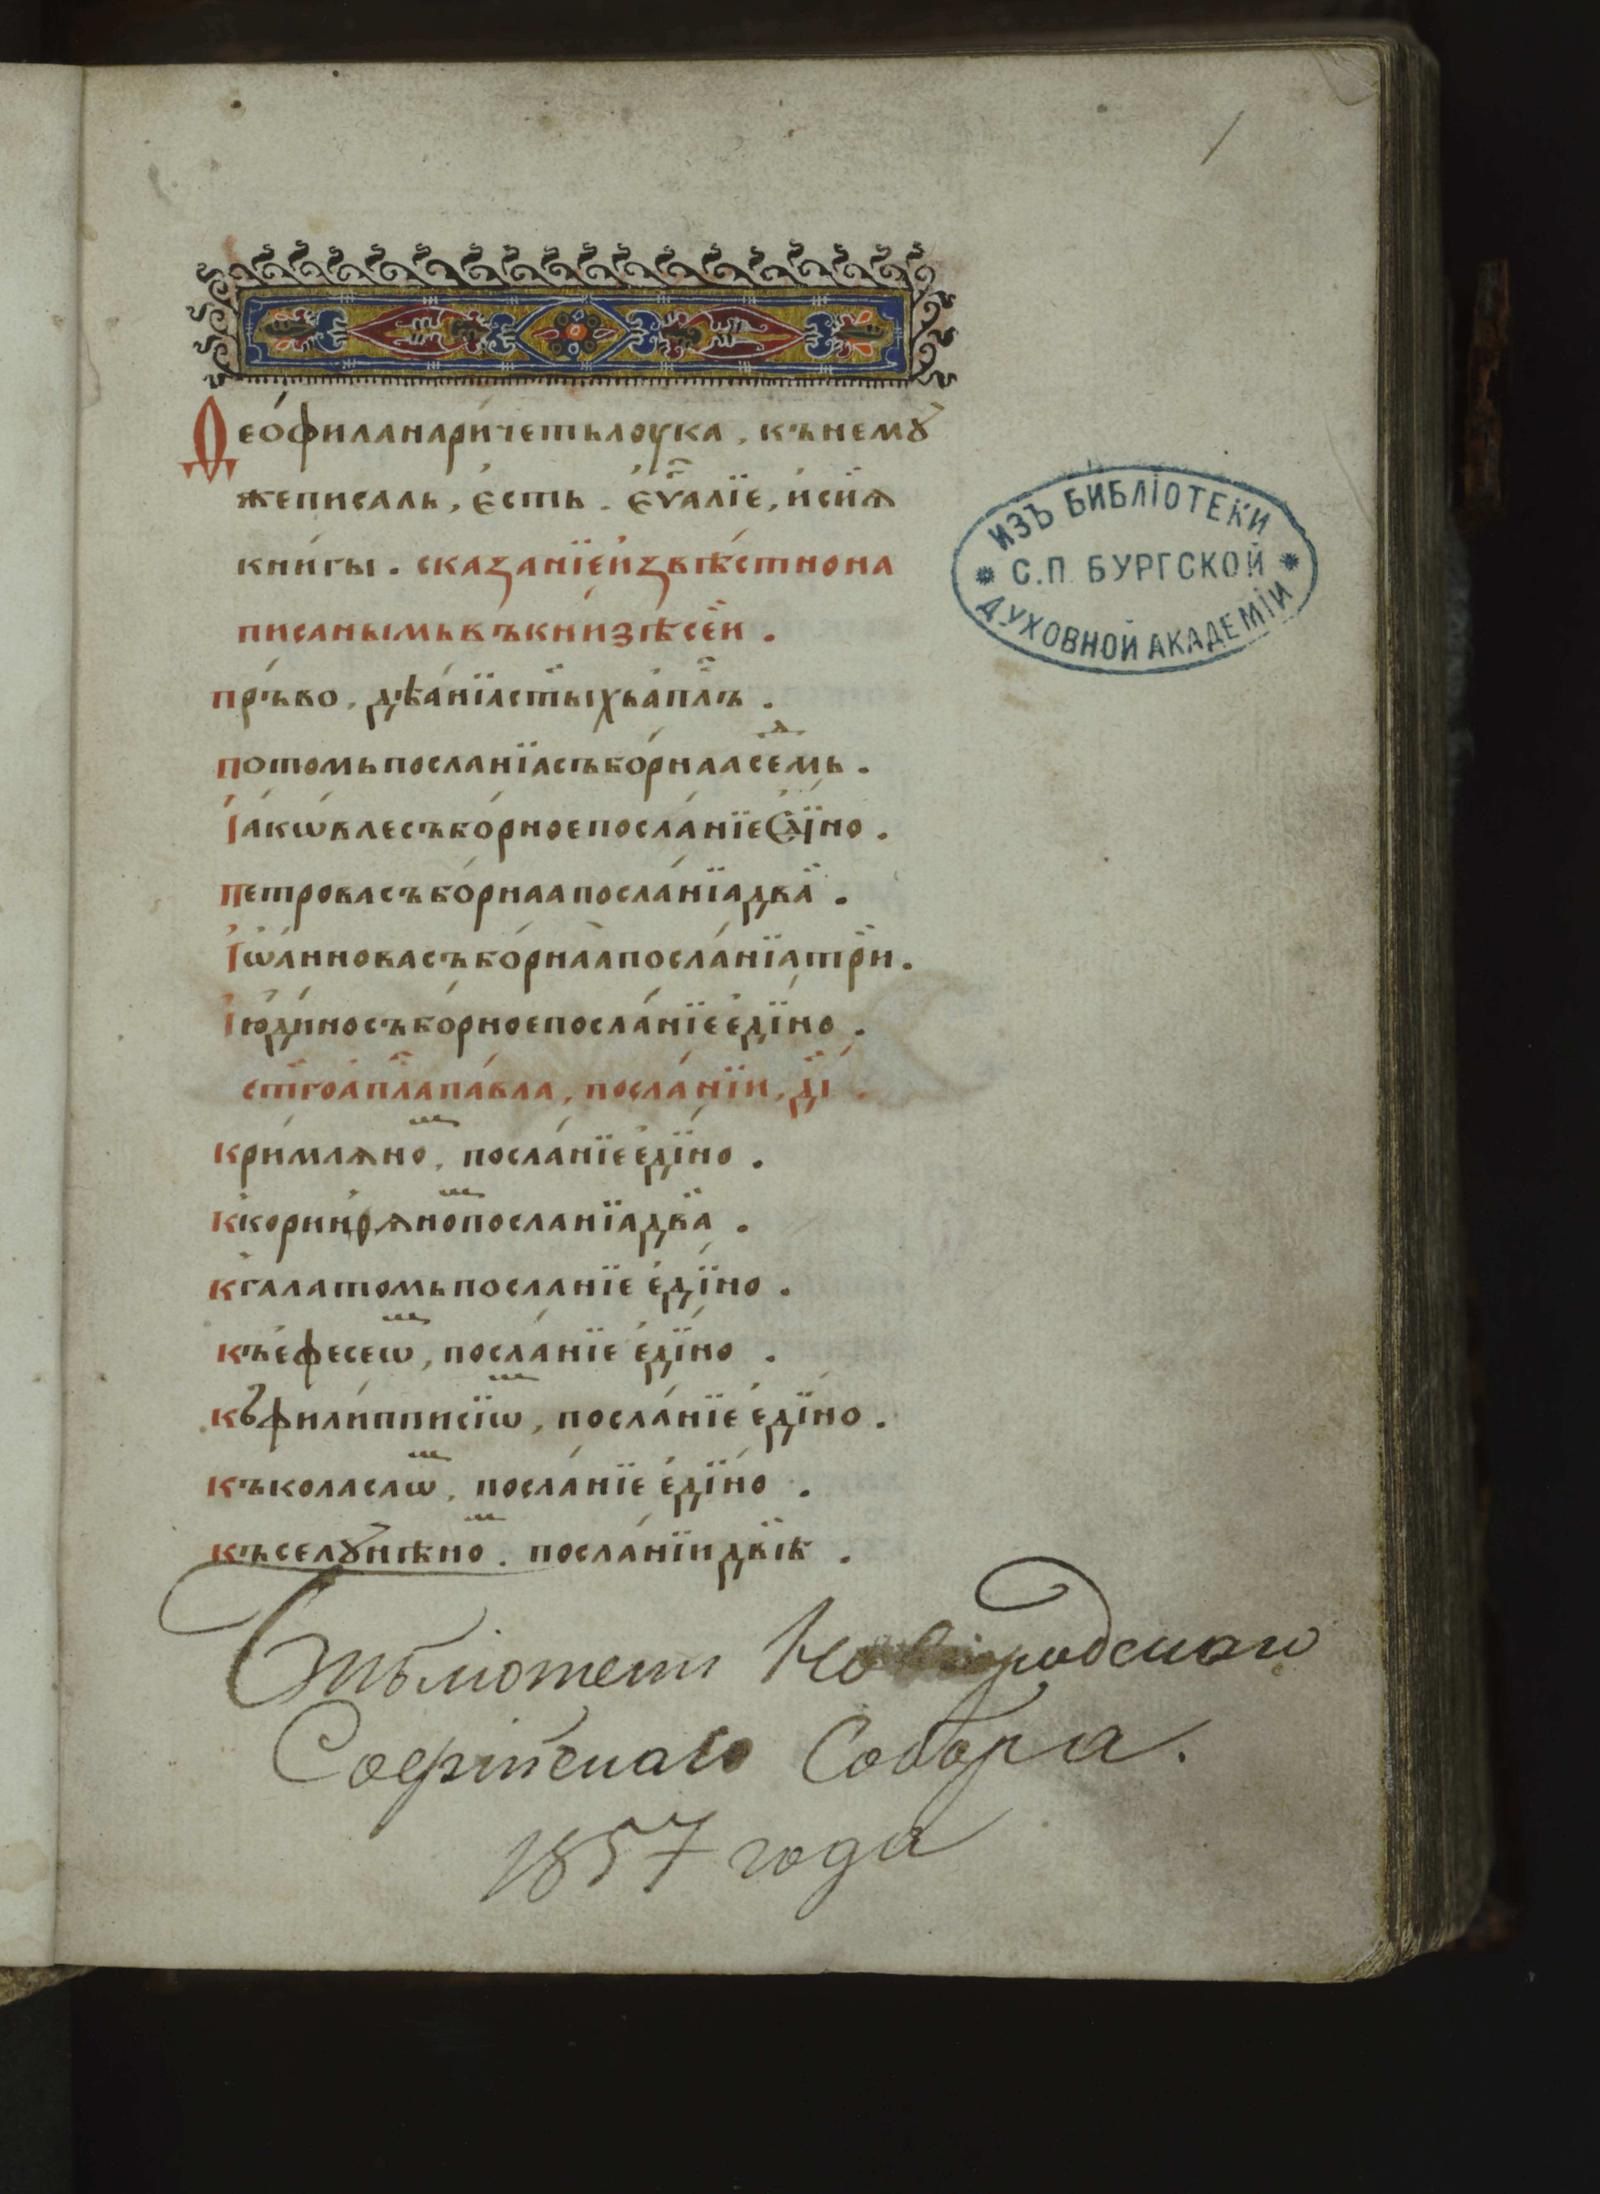 1
Ѳео́филанари́четьлоука, кънемꙋ
жеписалъ, є҆сть. є҆ѵⷢ҇алїе, исїѧ
кни́гы. сказанїеи҆звѣ́стнона
писанымьвъкни́зѣсе́и.
пръ́во, дѣа́нїастⷯы́хьа҆пⷭ҇лъ.
потомьпосланїасъбо́рнааседмь.
І҆а́кѡвлесъбо́рноепосла́нїеє҆ди́но.
Петровасъбо́рнаапосла́нїадва̀.
І҆ѡ́анновасъбо́рнаапосла́нїатрѝ.
І҆ю́диносъбо́рноепосла́нїеє҆ди́но.
ст҃гоа҆пⷭ҇лапа́вла, посла́нїи, д҃і.
Кри́млѧноⷨ, посла́нїеє҆ди́но.
Ккоринѳѧноⷨпосланїадва̀.
Кгалатомьпосланїе є҆ди́но.
Къе҆фесеѡⷨ, посла́нїе є҆ди́но.
Къфили́пписїѡⷨ, посла́нїе є҆ди́но.
Къколасаѡⷨ, посла́нїе є҆ди́но.
Къселꙋнѣноⷨ. посла́нїидвѣ̀.
Библіотеки Новгородскаго
Софійскаго Собора.
1857 года
ИЗЪ БИБЛІОТЕКИ
С.П. БУРГСКОЙ
ДУХОВНОЙ АКАДЕМІИ